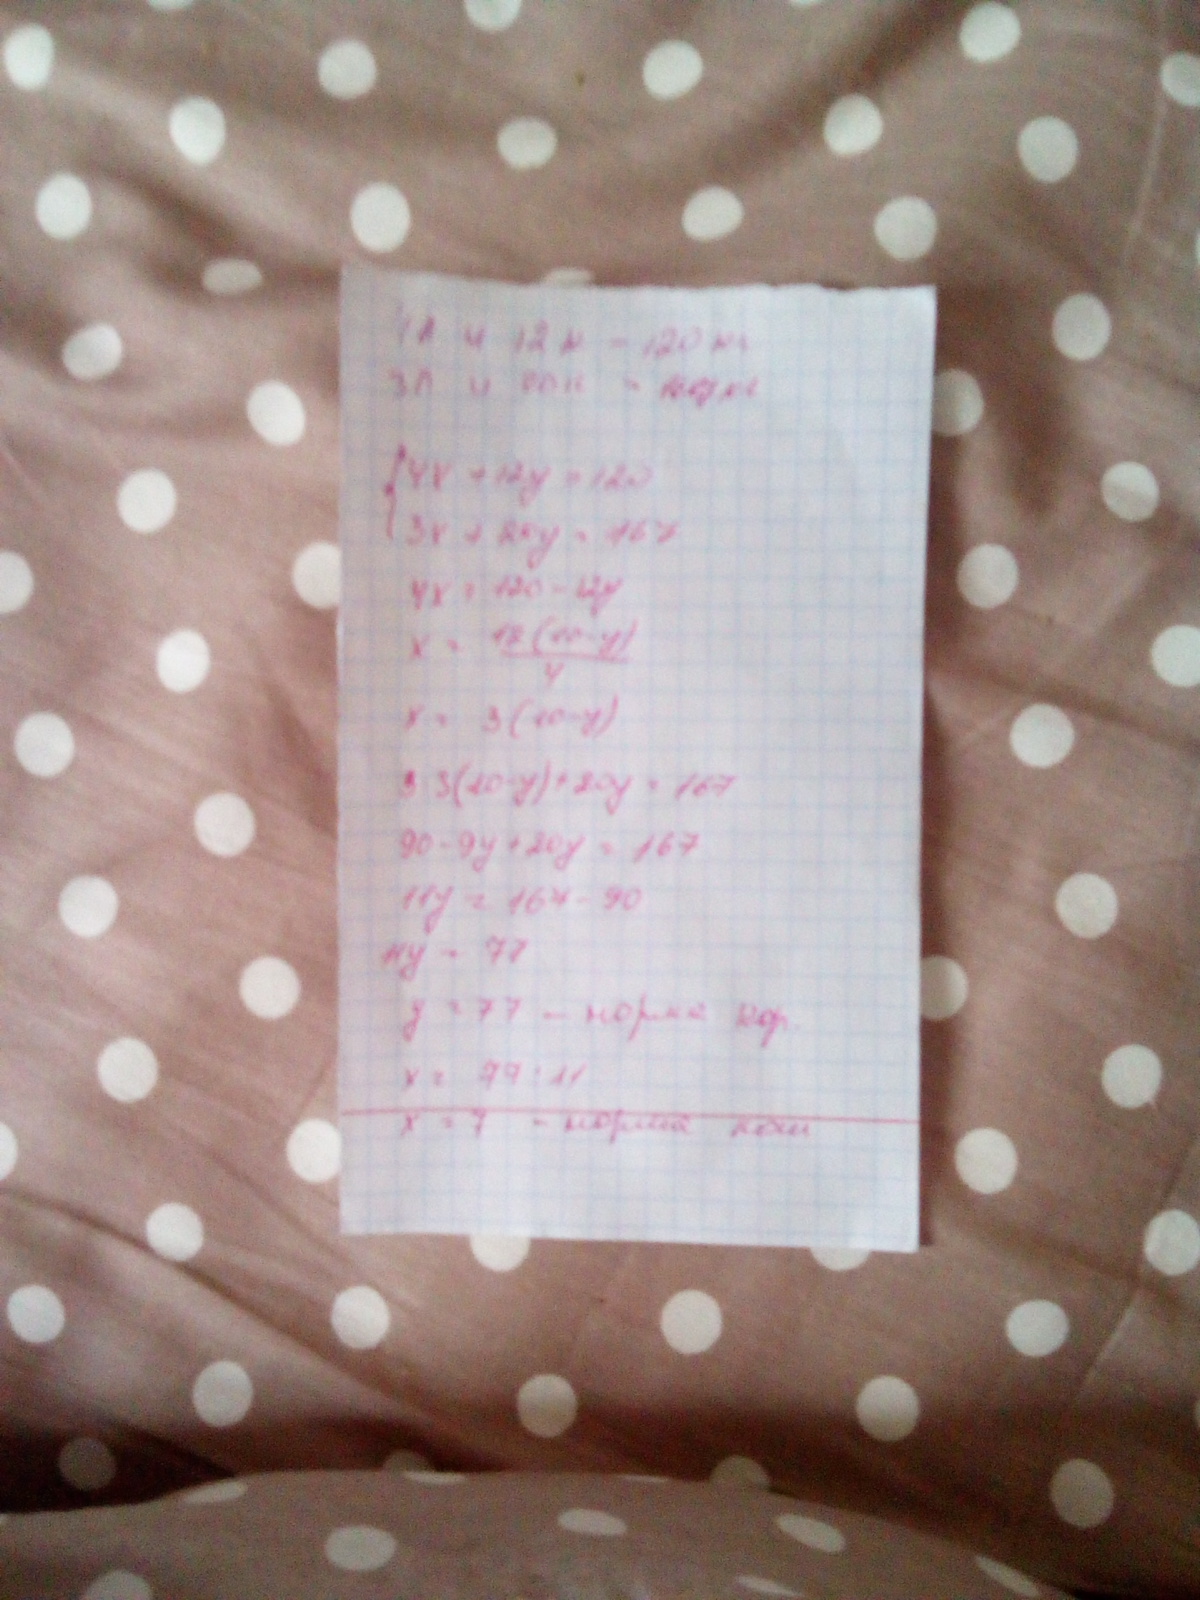 4л и 12к - 120 кг
3л и 20к - 167 кг
{4x + 12y = 120
3x + 20y = 167
4x = 120 - 12y
x = 12(10-y)/4
x = 3(10-y)
3·3(10-y)+20y = 167
90-9y+20y = 167
11y = 167-90
11y = 77
y = 77 - норма кор.
x = 77:11
x = 7 - норма